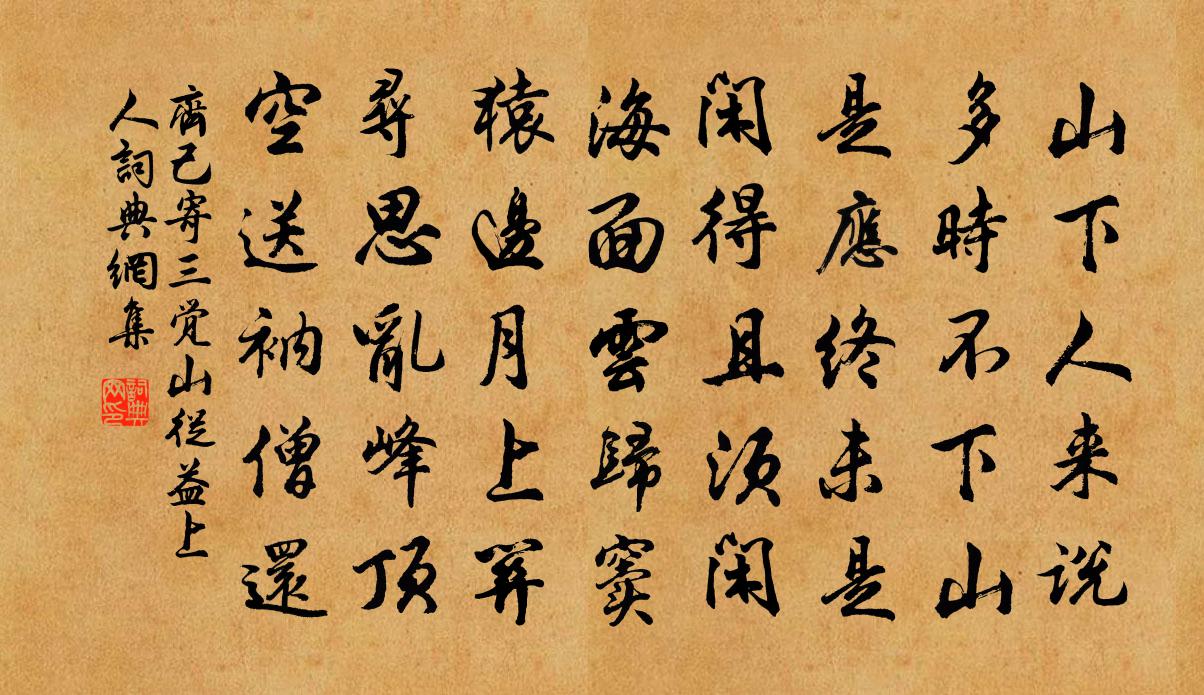 山下人来説
多時不下山
是應終未是
閑得且須閑
海面雲歸竇
猿邊月上关
尋思亂峰頂
空送衲僧還
齊己寄三覚山從益上
人詞典網集
詞典
网印